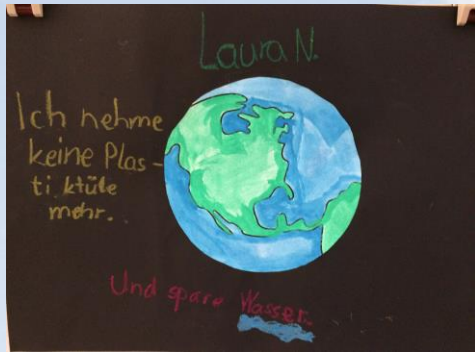 Laura N.
Ich nehme
keine Plas-
ti ktüte
mehr.
Und spare Wasser.